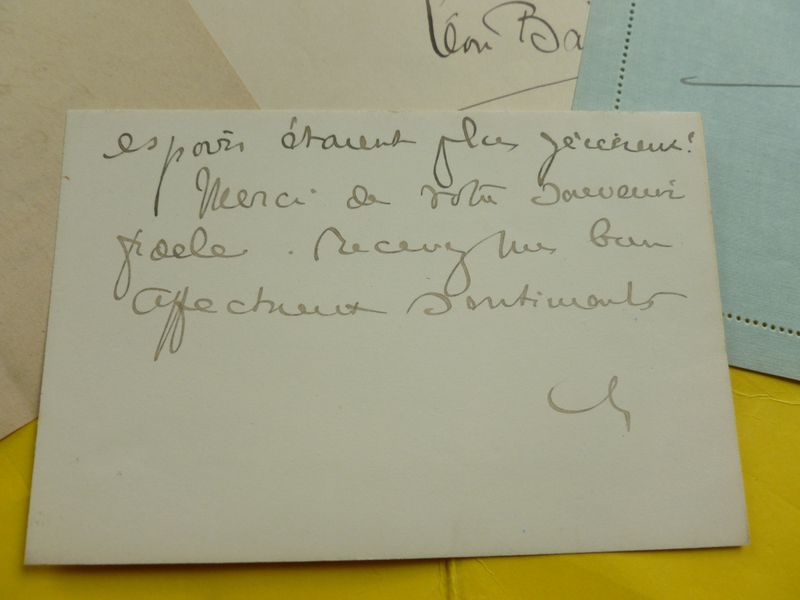 Léon Ba
espoirs étaient plus généreux!
Merci de votre souvenir
fidele. Recevez mes bien
affectueux sentiments